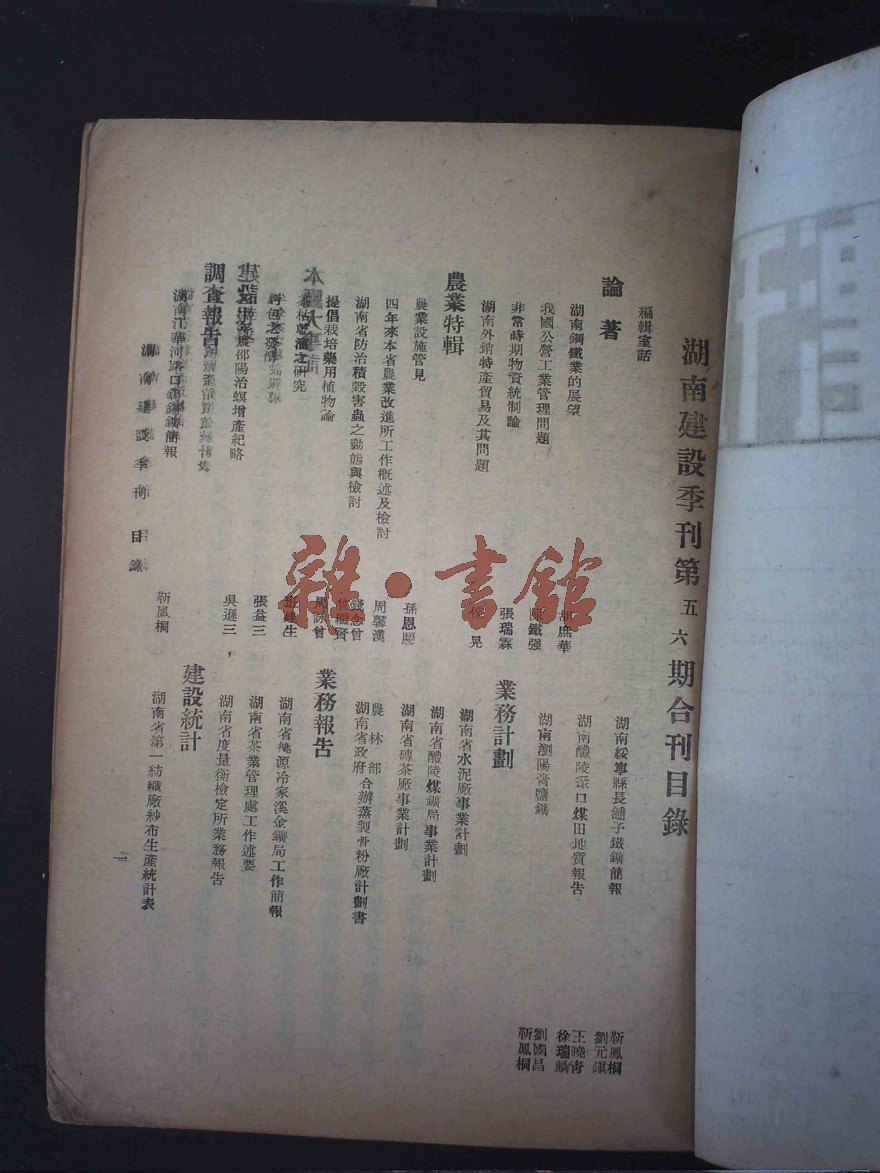 湖南建設季刊第五六期合刊目錄
編輯室話
論著
湖南鋼鐵業的展望 胡庶華
我國公營工業管理問題 陳鐵强
非常時期物資統制論 張瑞霖
湖南外銷特產貿易及其問題 晃
農業特輯
農業設施管見 孫恩麐
四年來本省農業改進所工作概述及檢討 周馨漢
湖南省防治積穀害蟲之動態與檢討 錢念曾
提倡栽培藥用植物論 周詠曾
之研究 生
張益三
邵陽治螟增產紀略 吳遜三
調查報告
湖南江華河路口鑛簡報 靳鳳桐
湖南綏寧縣長舖子鐵鑛簡報 靳鳳桐 劉元鎮
湖南醴陵口煤田地質報告 王曉青 徐瑞麟
湖南瀏陽膏鹽鑛 劉國昌 靳鳳桐
業務計劃
湖南省水泥廠事業計劃
湖南省醴陵煤鑛局事業計劃
湖南省磚茶廠事業計劃
農林部湖南省政府合辦蒸製骨粉廠計劃書
業務報告
湖南省桃源冷家溪金鑛局工作簡報
湖南省茶業管理處工作述要
湖南省度量衡檢定所業務報告
建設統計
湖南省第一紡織廠紗布生產統計表
湖南建設季刊 目錄
二
雜·書館